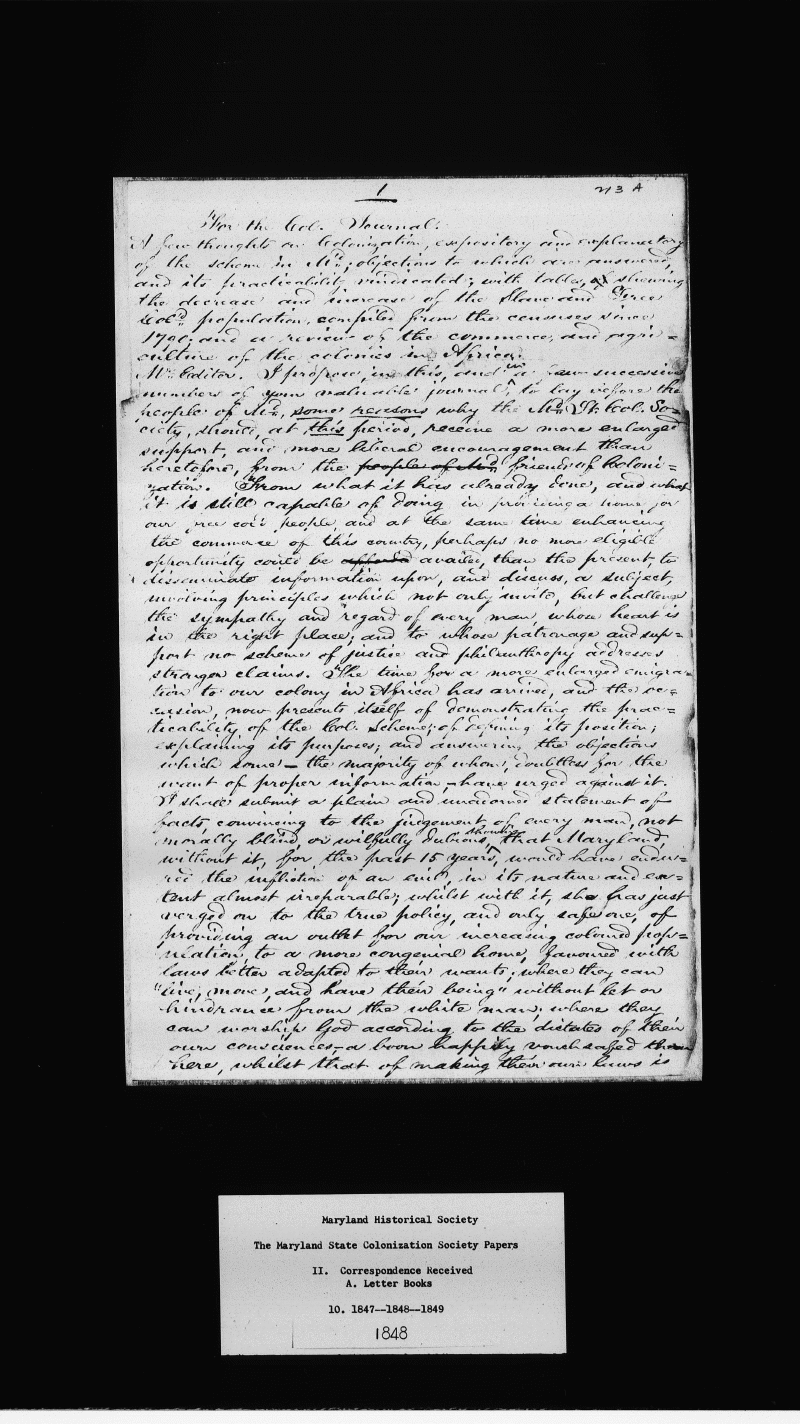 1
213 A
For the Col. Journal.
A few thoughts on Colonization, expository and explanatory
of the scheme in Md; objections to which are answered,
and its practicability vindicated; with tables, shewing
the decrease and increase of the Slave and Free
Cold population, compiled from the censuses since
1790; and a review of the commerce, and agri=
culture of the colonies in Africa.
Mr. Editor. I propose, in this, and in a few successive
numbers of your valuable journal, to lay before the
people of Md, some reasons why the Md St. Col. So=
ciety, should, at this period, receive a more enlarged
support, and more liberal encouragement than
heretofore, from the people of Md friends of Coloni=
zation. From what it has already done, and what
it is still capable of doing in providing a home for
our free cold people, and at the same time enhancing
the commerce of this country, perhaps no more eligible
opportunity could be afforded availed, than the present, to
disseminate information upon, and discuss, a subject,
involving principles which not only invite, but challenge
the sympathy and regard of every man, whose heart is
in the right place; and to whose patronage and sup=
port no scheme of justice and philanthropy addresses
stronger claims. The time for a more enlarged emigra=
tion to our colony in Africa has arrived, and the oc=
casion, now presents itself of demonstrating the prac=
ticability of the Col. scheme; of defining its position;
explaining its purposes; and answering the objections
which some — the majority of whom, doubtless for the
want of proper information — have urged against it.
I shall submit a plain and unadorned statement of
facts, convincing to the judgement of every man, not
morally blind, or wilfully dubious, showing that Maryland,
without it, for the past 15 years, would have endu=
red the infliction of an evil, in its nature and ex=
tent almost irreparable; whilst with it, she has just
verged on to the true policy, and only safe one, of
providing an outlet for our increasing coloured pop=
ulation, to a more congenial home, favoured with
laws better adapted to their wants; where they can
"live, move, and have their being" without let or
hindrance from the white man; where they
can worship God according to the dictates of their
own consciences, — a boon happily vouchsafed them
here, whilst that of making their own laws is
Maryland Historical Society
The Maryland State Colonization Society Papers
II. Correspondence Received
A. Letter Books
10. 1847--1848--1849
1848